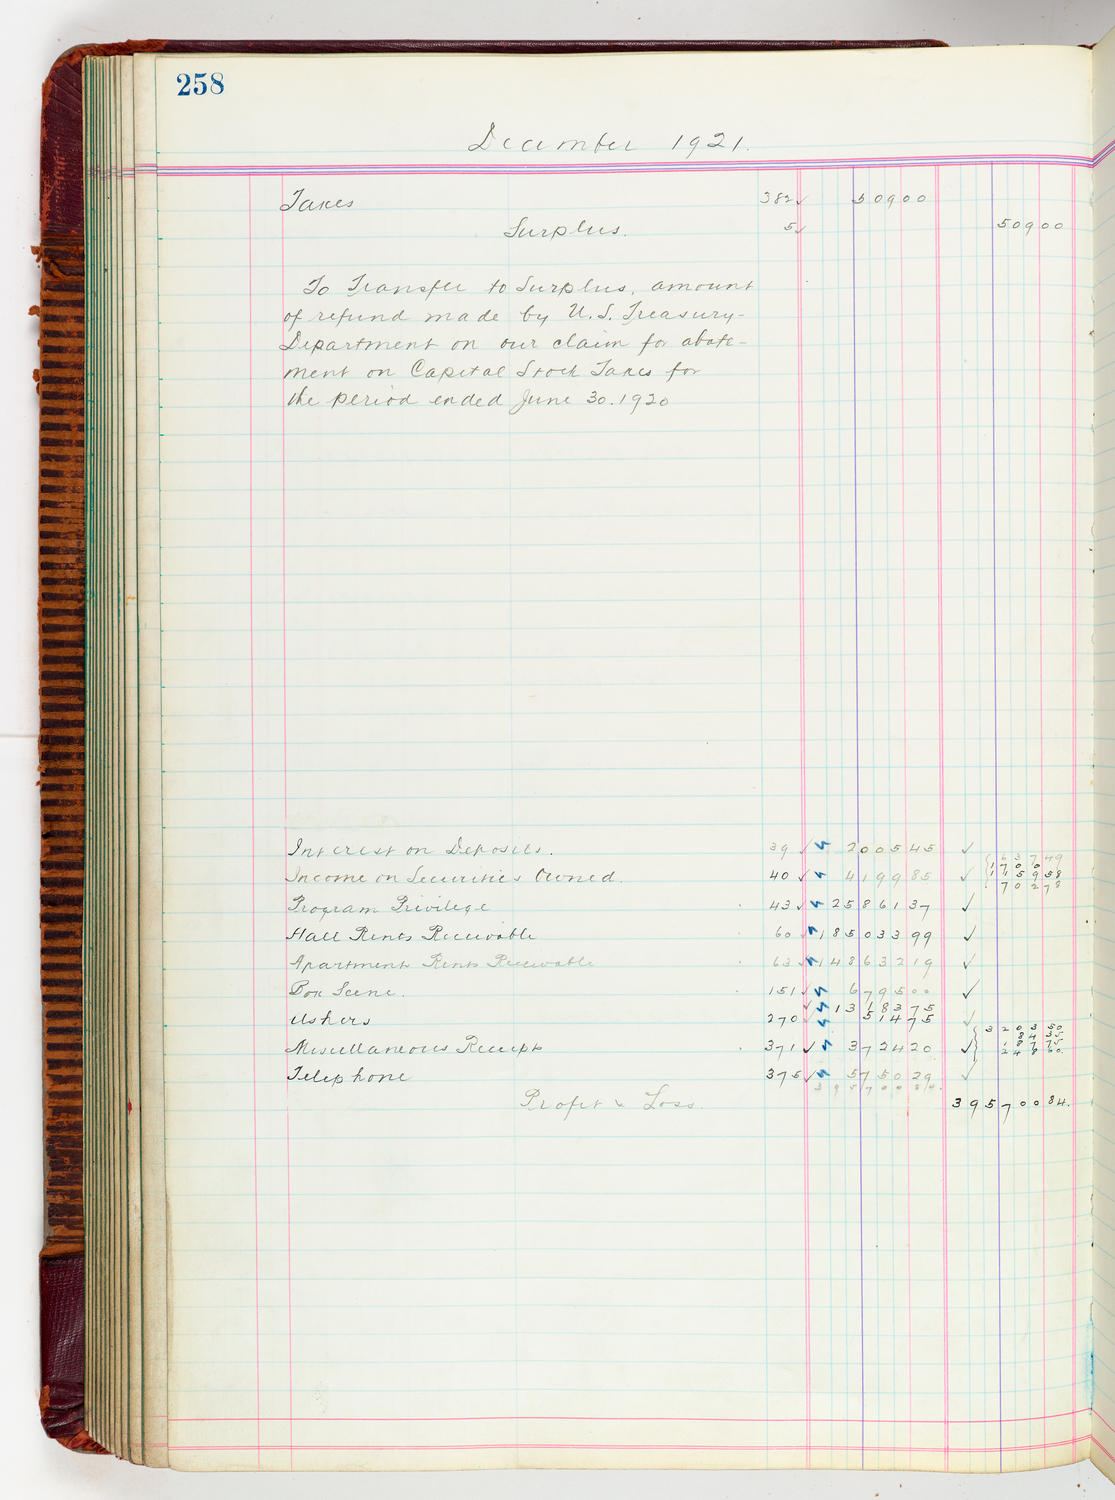 258
December 1921.
Taxes 382✓ 509 00
Surplus. 5✓ 509 00
To Transfer to Surplus, amount
of refund made by U.S. Treasury-
Department on our claim for abate-
ment on Capital Stock Taxes for
the period ended June 30.1920
Interest on Deposits. 39 ✓ 2005 45 ✓
Income on Securities Owned. 40 ✓ 4199 85 ✓
Program Privilege 43 ✓ 25861 37 ✓
Hall Rents Receivable 60 ✓ 185033 99 ✓
Apartment Rents Receivable 63 ✓ 148632 19 ✓
Box Scene. 151 ✓ 6795 00 ✓
✓ 13183 75
Ushers 270 ✓ 514 75 ✓
Miscellaneous Receipts 371 ✓ 3724 20 ✓
Telephone 375 ✓ 5750 29 ✓
395700 84
Profit & Loss. 395700 84.